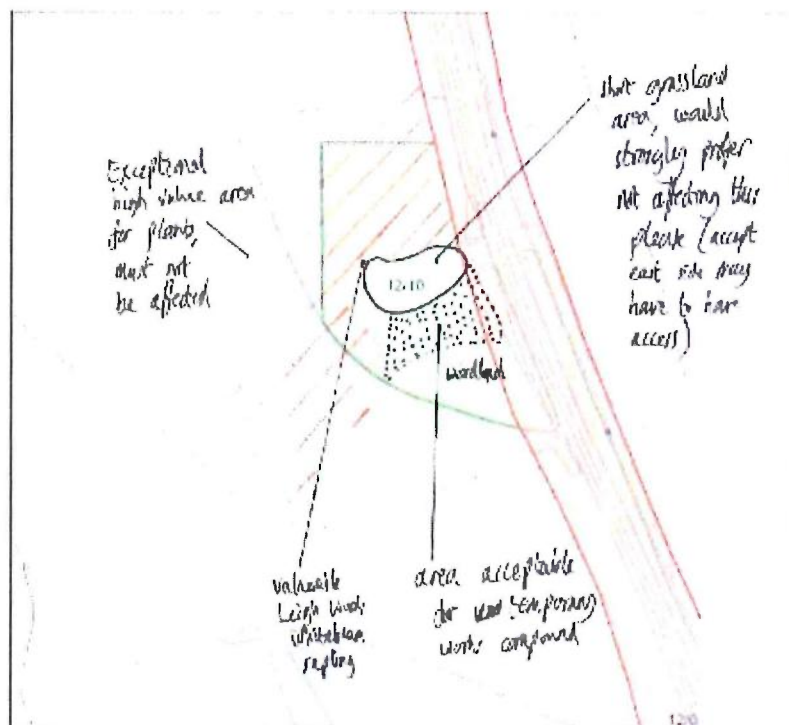 Exceptional
high value area
for plants,
must not
be affected
short grassland
area, would
strongly prefer
not affecting this
please (accept
east side may
have to have
access)
12.10
woodland
valuable
Leigh Woods
whitebeam
sapling
area acceptable
for temporary
works compound